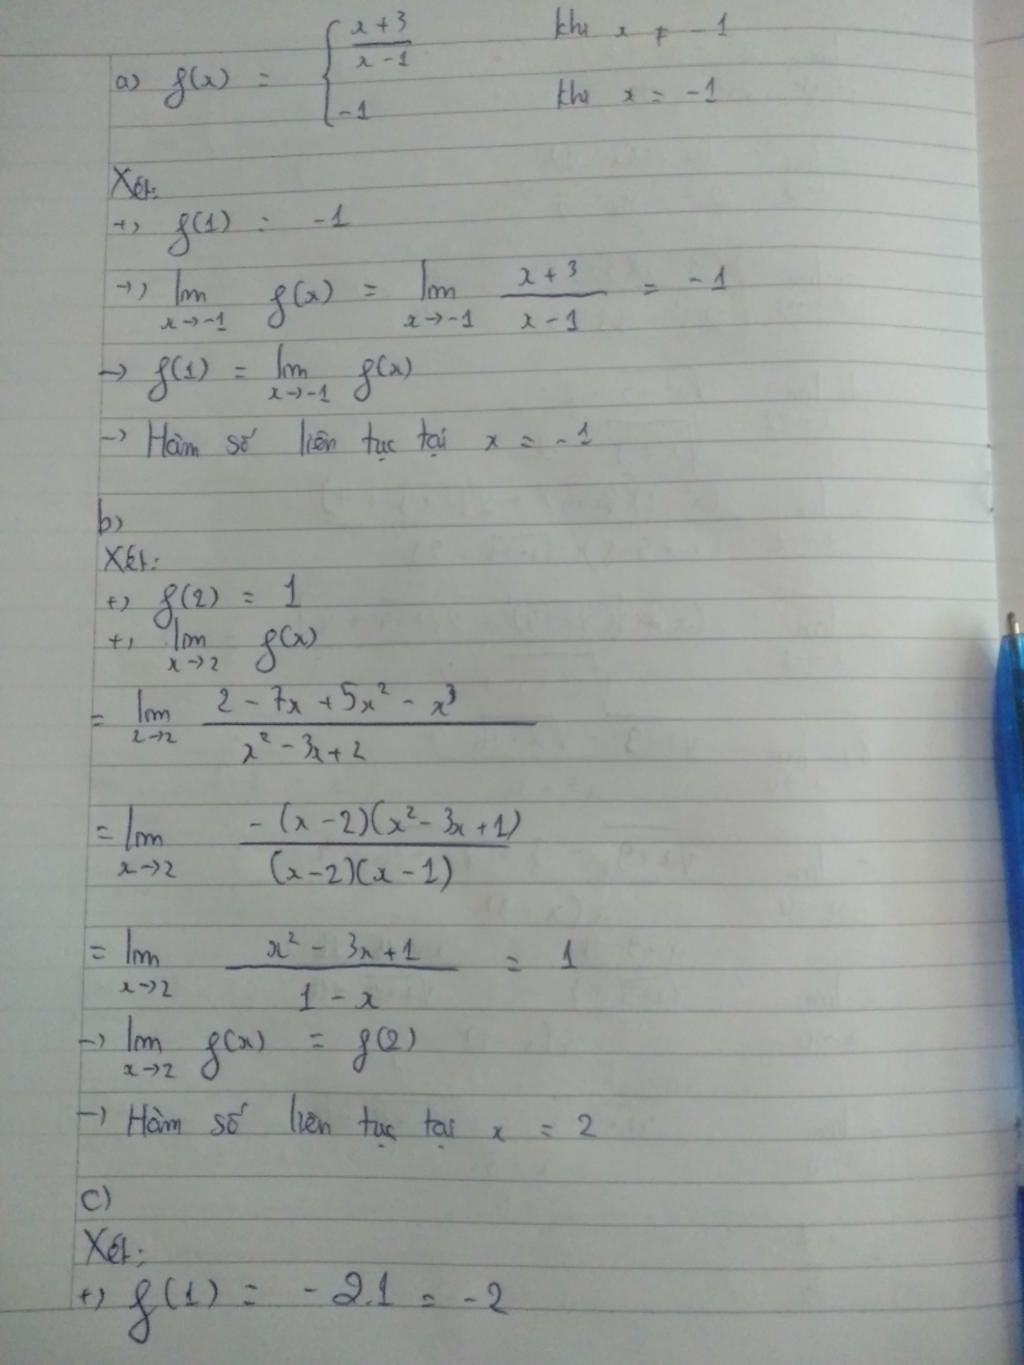 a) f(x) = { x + 3 / x - 1 khi x ≠ -1
-1 khi x = -1
Xét:
+, f(1) = -1
+, lim x→-1 f(x) = lim x→-1 x + 3 / x - 1 = -1
→ f(1) = lim x→-1 f(x)
→ Hàm số liên tục tại x = -1
b)
Xét:
+, f(2) = 1
+, lim x→2 f(x)
= lim x→2 2 - 7x + 5x² - x³ / x² - 3x + 2
= lim x→2 -(x - 2)(x² - 3x + 1) / (x - 2)(x - 1)
= lim x→2 x² - 3x + 1 / 1 - x = 1
→ lim x→2 f(x) = f(2)
→ Hàm số liên tục tại x = 2
c)
Xét:
+, f(1) = -2.1 = -2